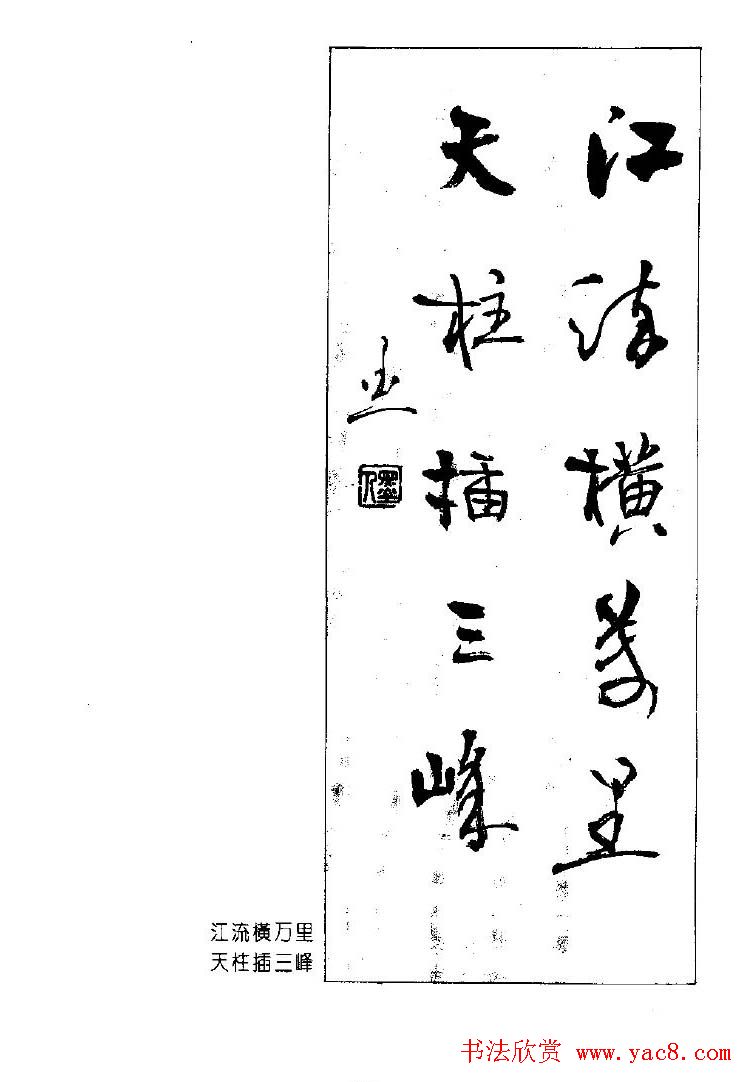 江流橫萬里
天柱插三峰
江流横万里
天柱插三峰
书法欣赏 www.yac8.com